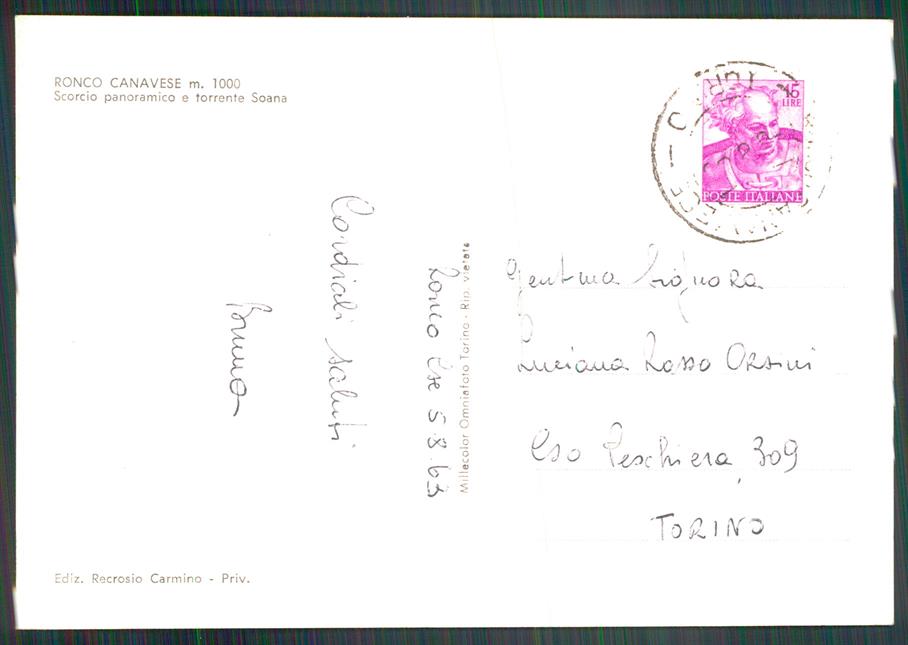 RONCO CANAVESE m. 1000
Scorcio panoramico e torrente Soana
15
LIRE
POSTE ITALIANE
Ronco Cse 5 8.63
Cordiali saluti
Bruno
Millecolor Omniafoto Torino - Rip. vietata
Gent.ma Signora
Luciana Rosso Orsini
Cso Peschiera, 309
TORINO
Ediz. Recrosio Carmino - Priv.